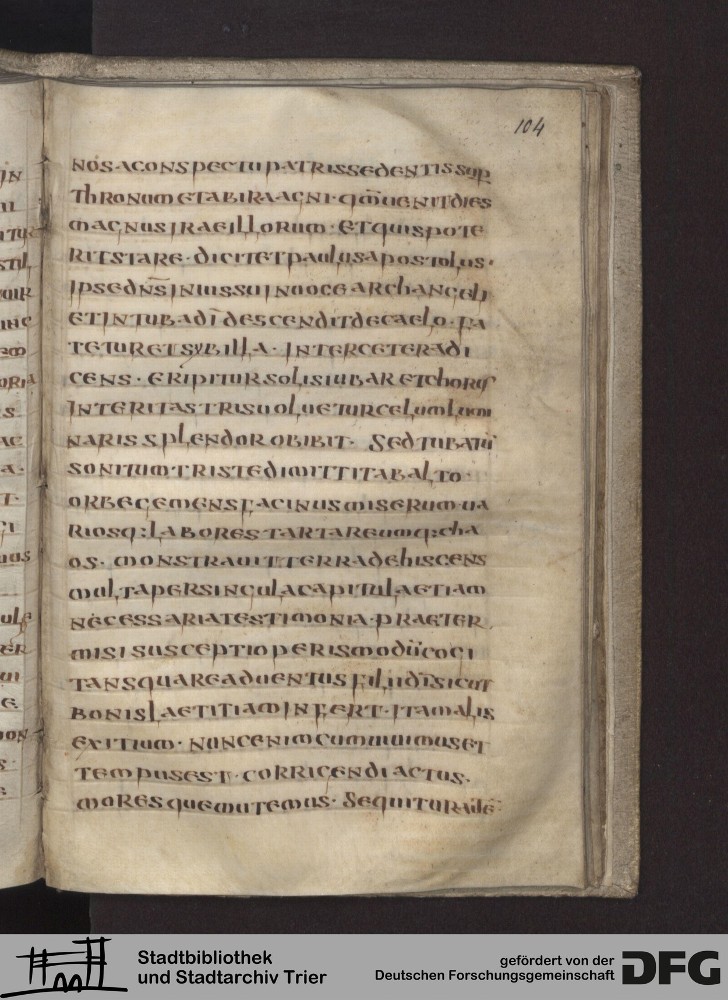 104
NOS ACONSPECTU PATRIS SEDENTIS SUP
THRONUM ET ABIRA AGNI · QM UENIT DIES
MAGNUS IRAE ILLORUM · ET QUIS POTE
RIT STARE · DICIT ET PAULUS APOSTOLUS ·
IPSE DNS IN IUSSU IN UOCE ARCHANGELI
ET IN TUBA DI DESCENDIT DE CAELO · FA
TETUR ET SYBILLA · INTER CETERA DI
CENS · ERIPITUR SOLIS IUBAR ET CHORUS
INTERIT ASTRIS UOLUETUR CELUM LUMI
NARIS SPLENDOR OBIBIT · SED TUBA TU
SONITUM TRISTE DIMITTIT AB ALTO ·
ORBE GEMENS FACINUS MISERUM UA
RIOSQ: LABORES TARTAREUMQ: CHA
OS · MONSTRAUIT TERRA DEHISCENS
MULTA PER SINGULA CAPITULA ETIAM
NECESSARIA TESTIMONIA · PRAETER
MISI SUSCEPTI OPERIS MODU COGI
TANS QUARE ADUENTUS FILII DI SICUT
BONIS LAETITIAM INFERT · ITA MALIS
EXITIUM · NUNC ENIM CUM UIUIMUS ET
TEMPUS EST · CORRIGENDI ACTUS ·
MORESQUE MUTEMUS · SEQUITUR
Stadtbibliothek
und Stadtarchiv Trier
gefördert von der
Deutschen Forschungsgemeinschaft
DFG